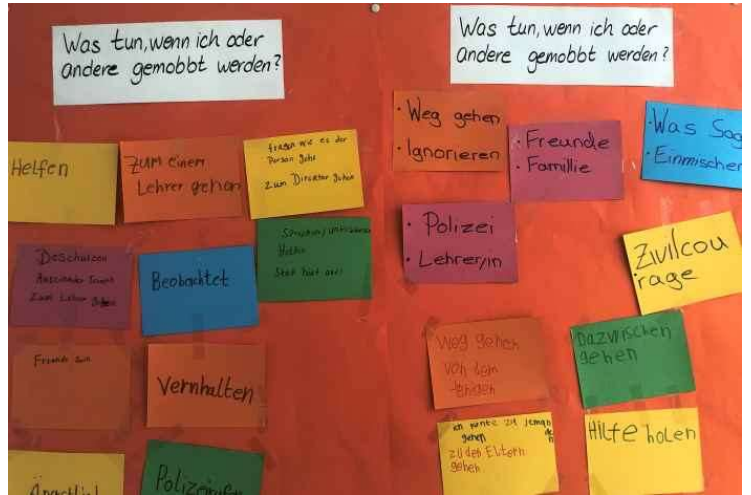 Was tun, wenn ich oder
andere gemobbt werden?
Helfen
Zum einem
Lehrer gehen
fragen wie es der
Person geht
Zum Direktor gehen
Beschützen
Zum Lehrer gehen
Beobachtet
Freunde sein
Vernhalten
Ängstlich
Polizei
Was tun, wenn ich oder
andere gemobbt werden?
• Weg gehen
• Ignorieren
• Freunde
• Famillie
• Was Sag
• Einmischen
• Polizei
• Lehrer/in
Zivilcou
rage
Weg gehen
von dem
Dazwischen
gehen
ich
gehen
zu den Eltern
gehen
Hilfe holen